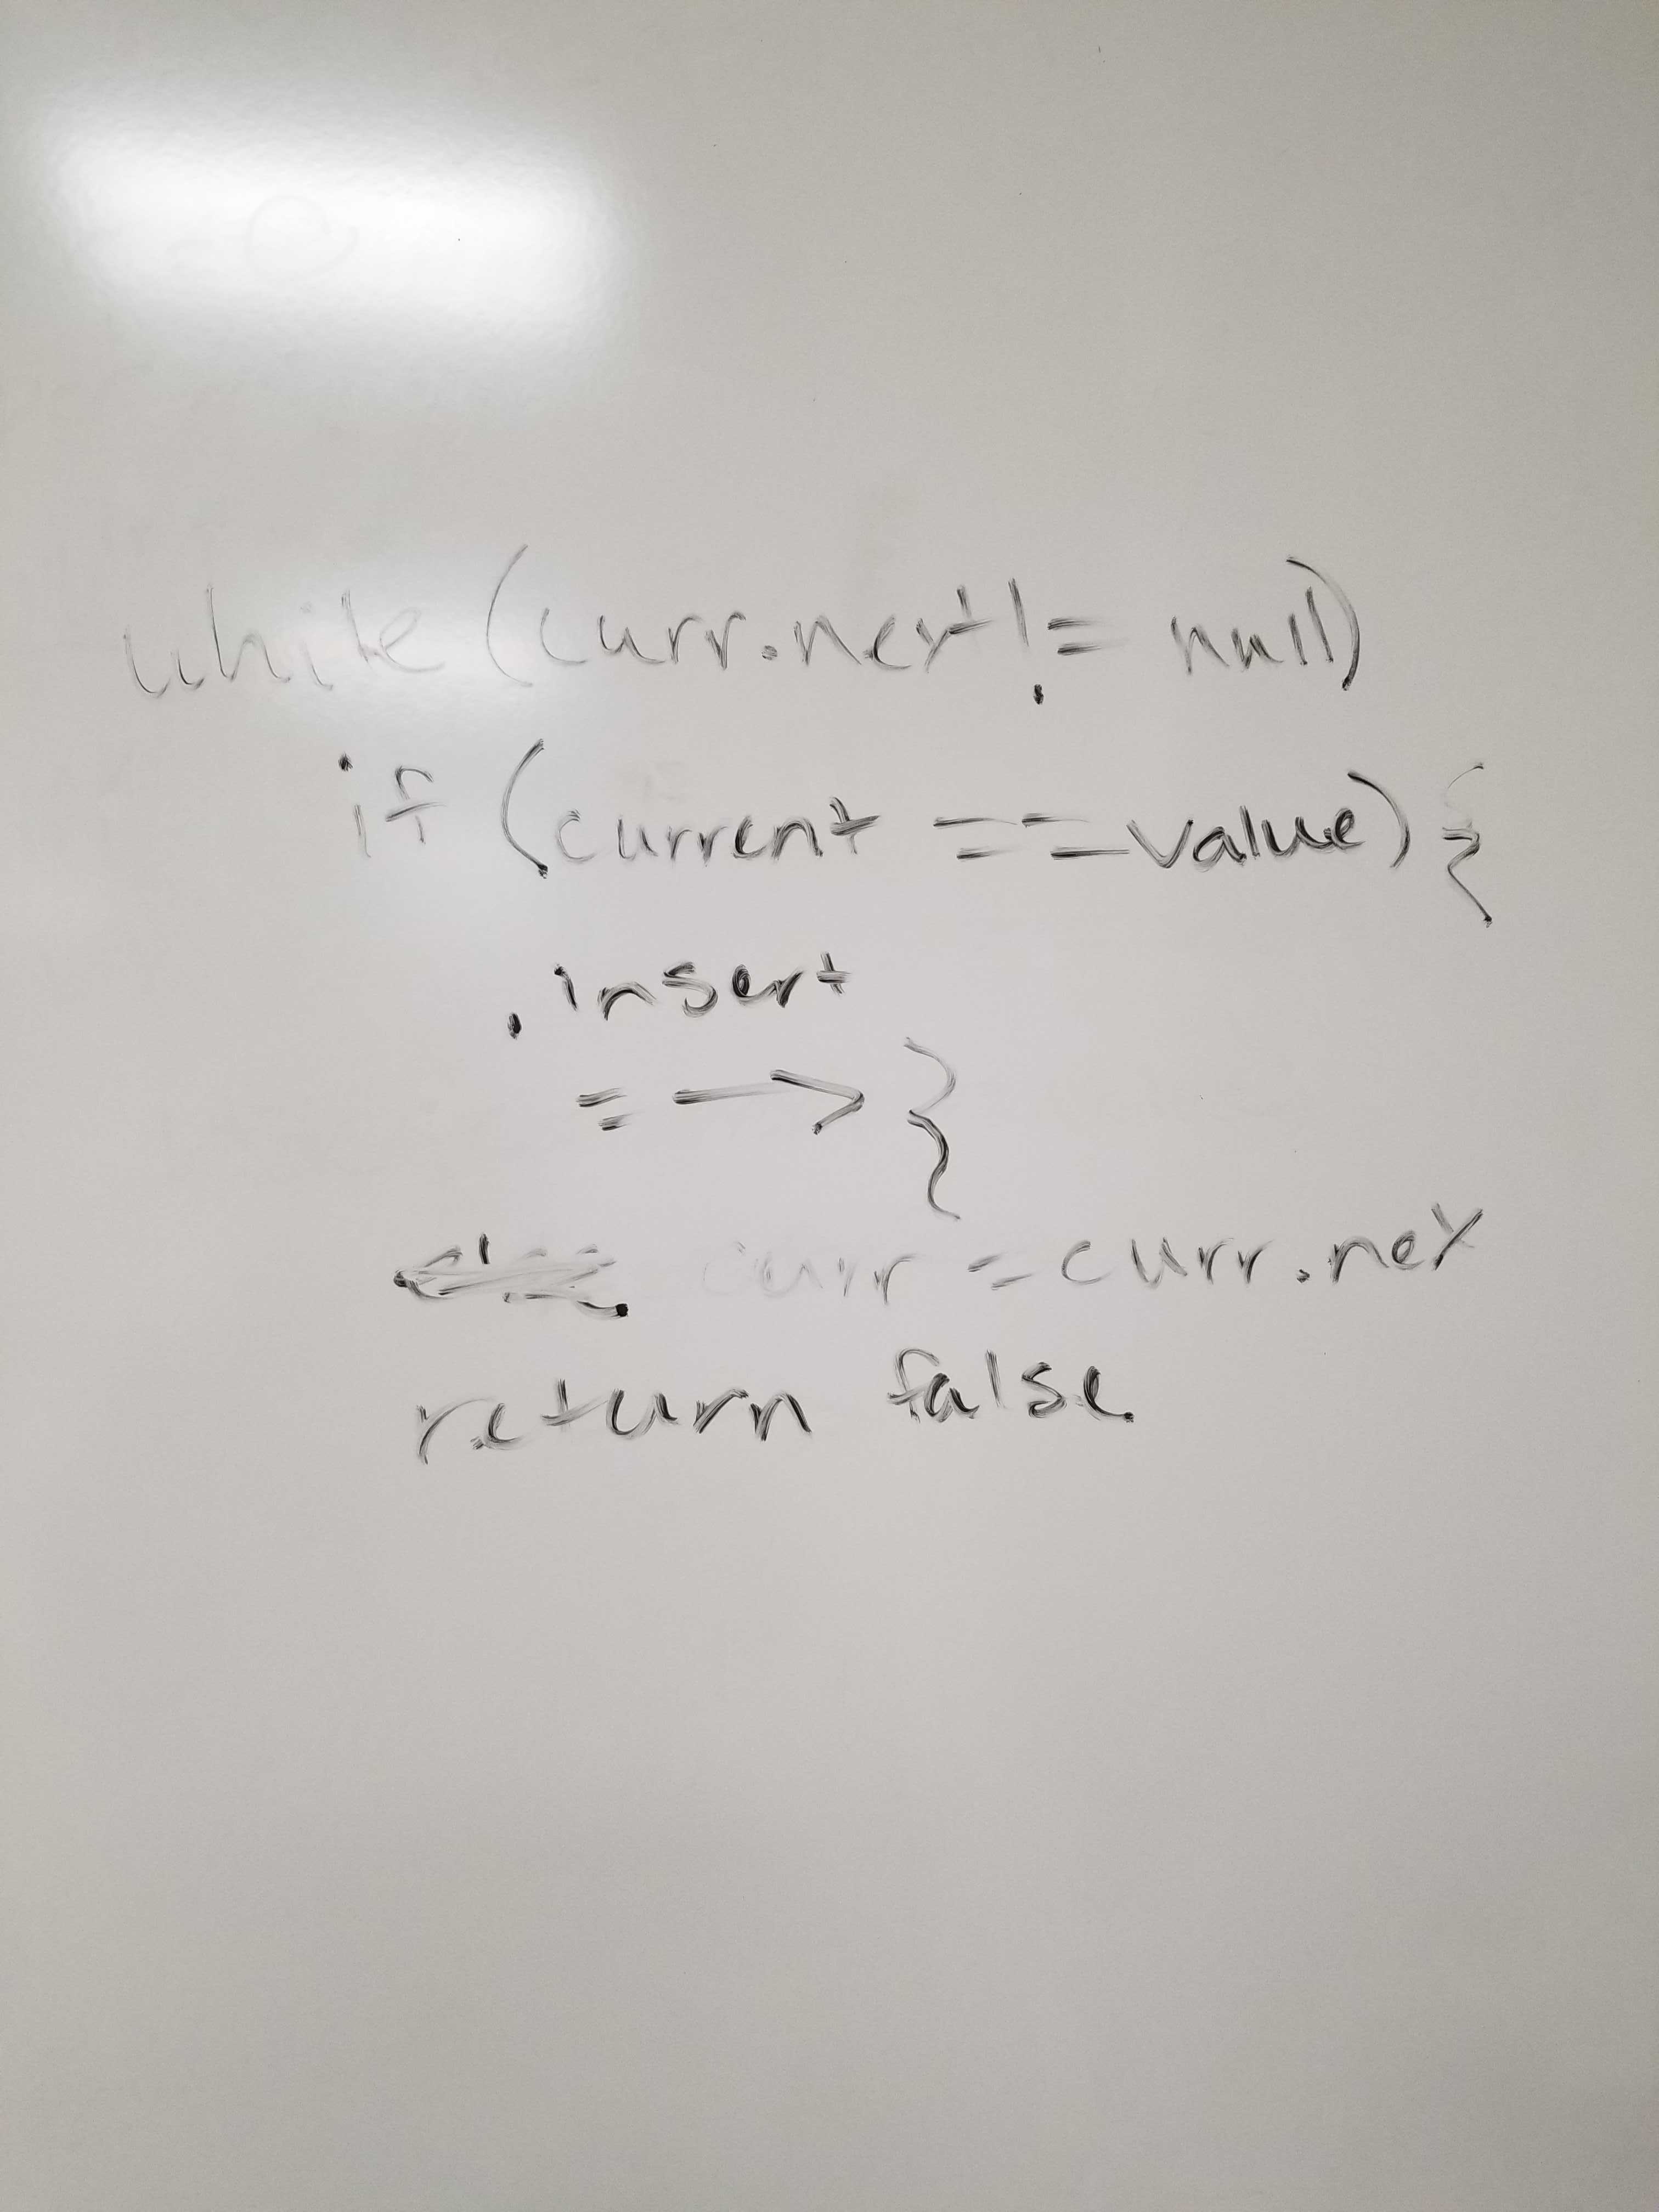 while (curr.next != null)
if (current == value) {
. insert
= → }
else curr = curr.nex
return false